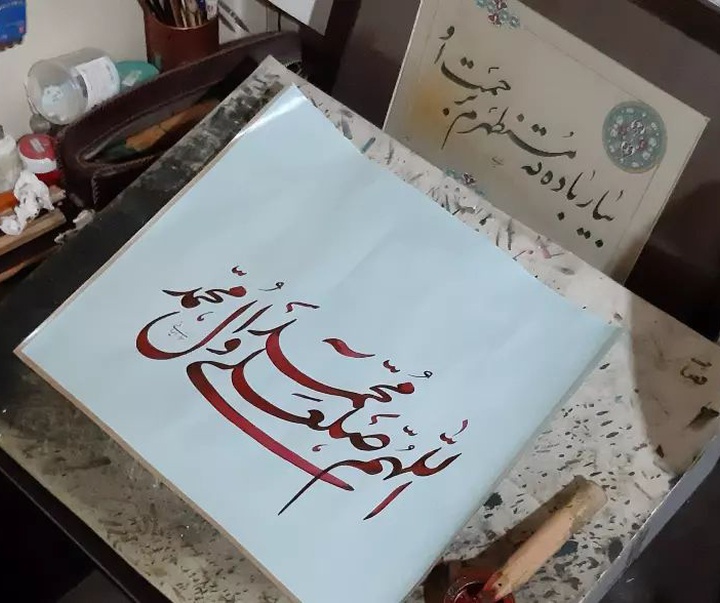 بیار باده که مُستظهرم برحمت اوُ
اللّهُمَّ صل علی محمّد وال محمّد